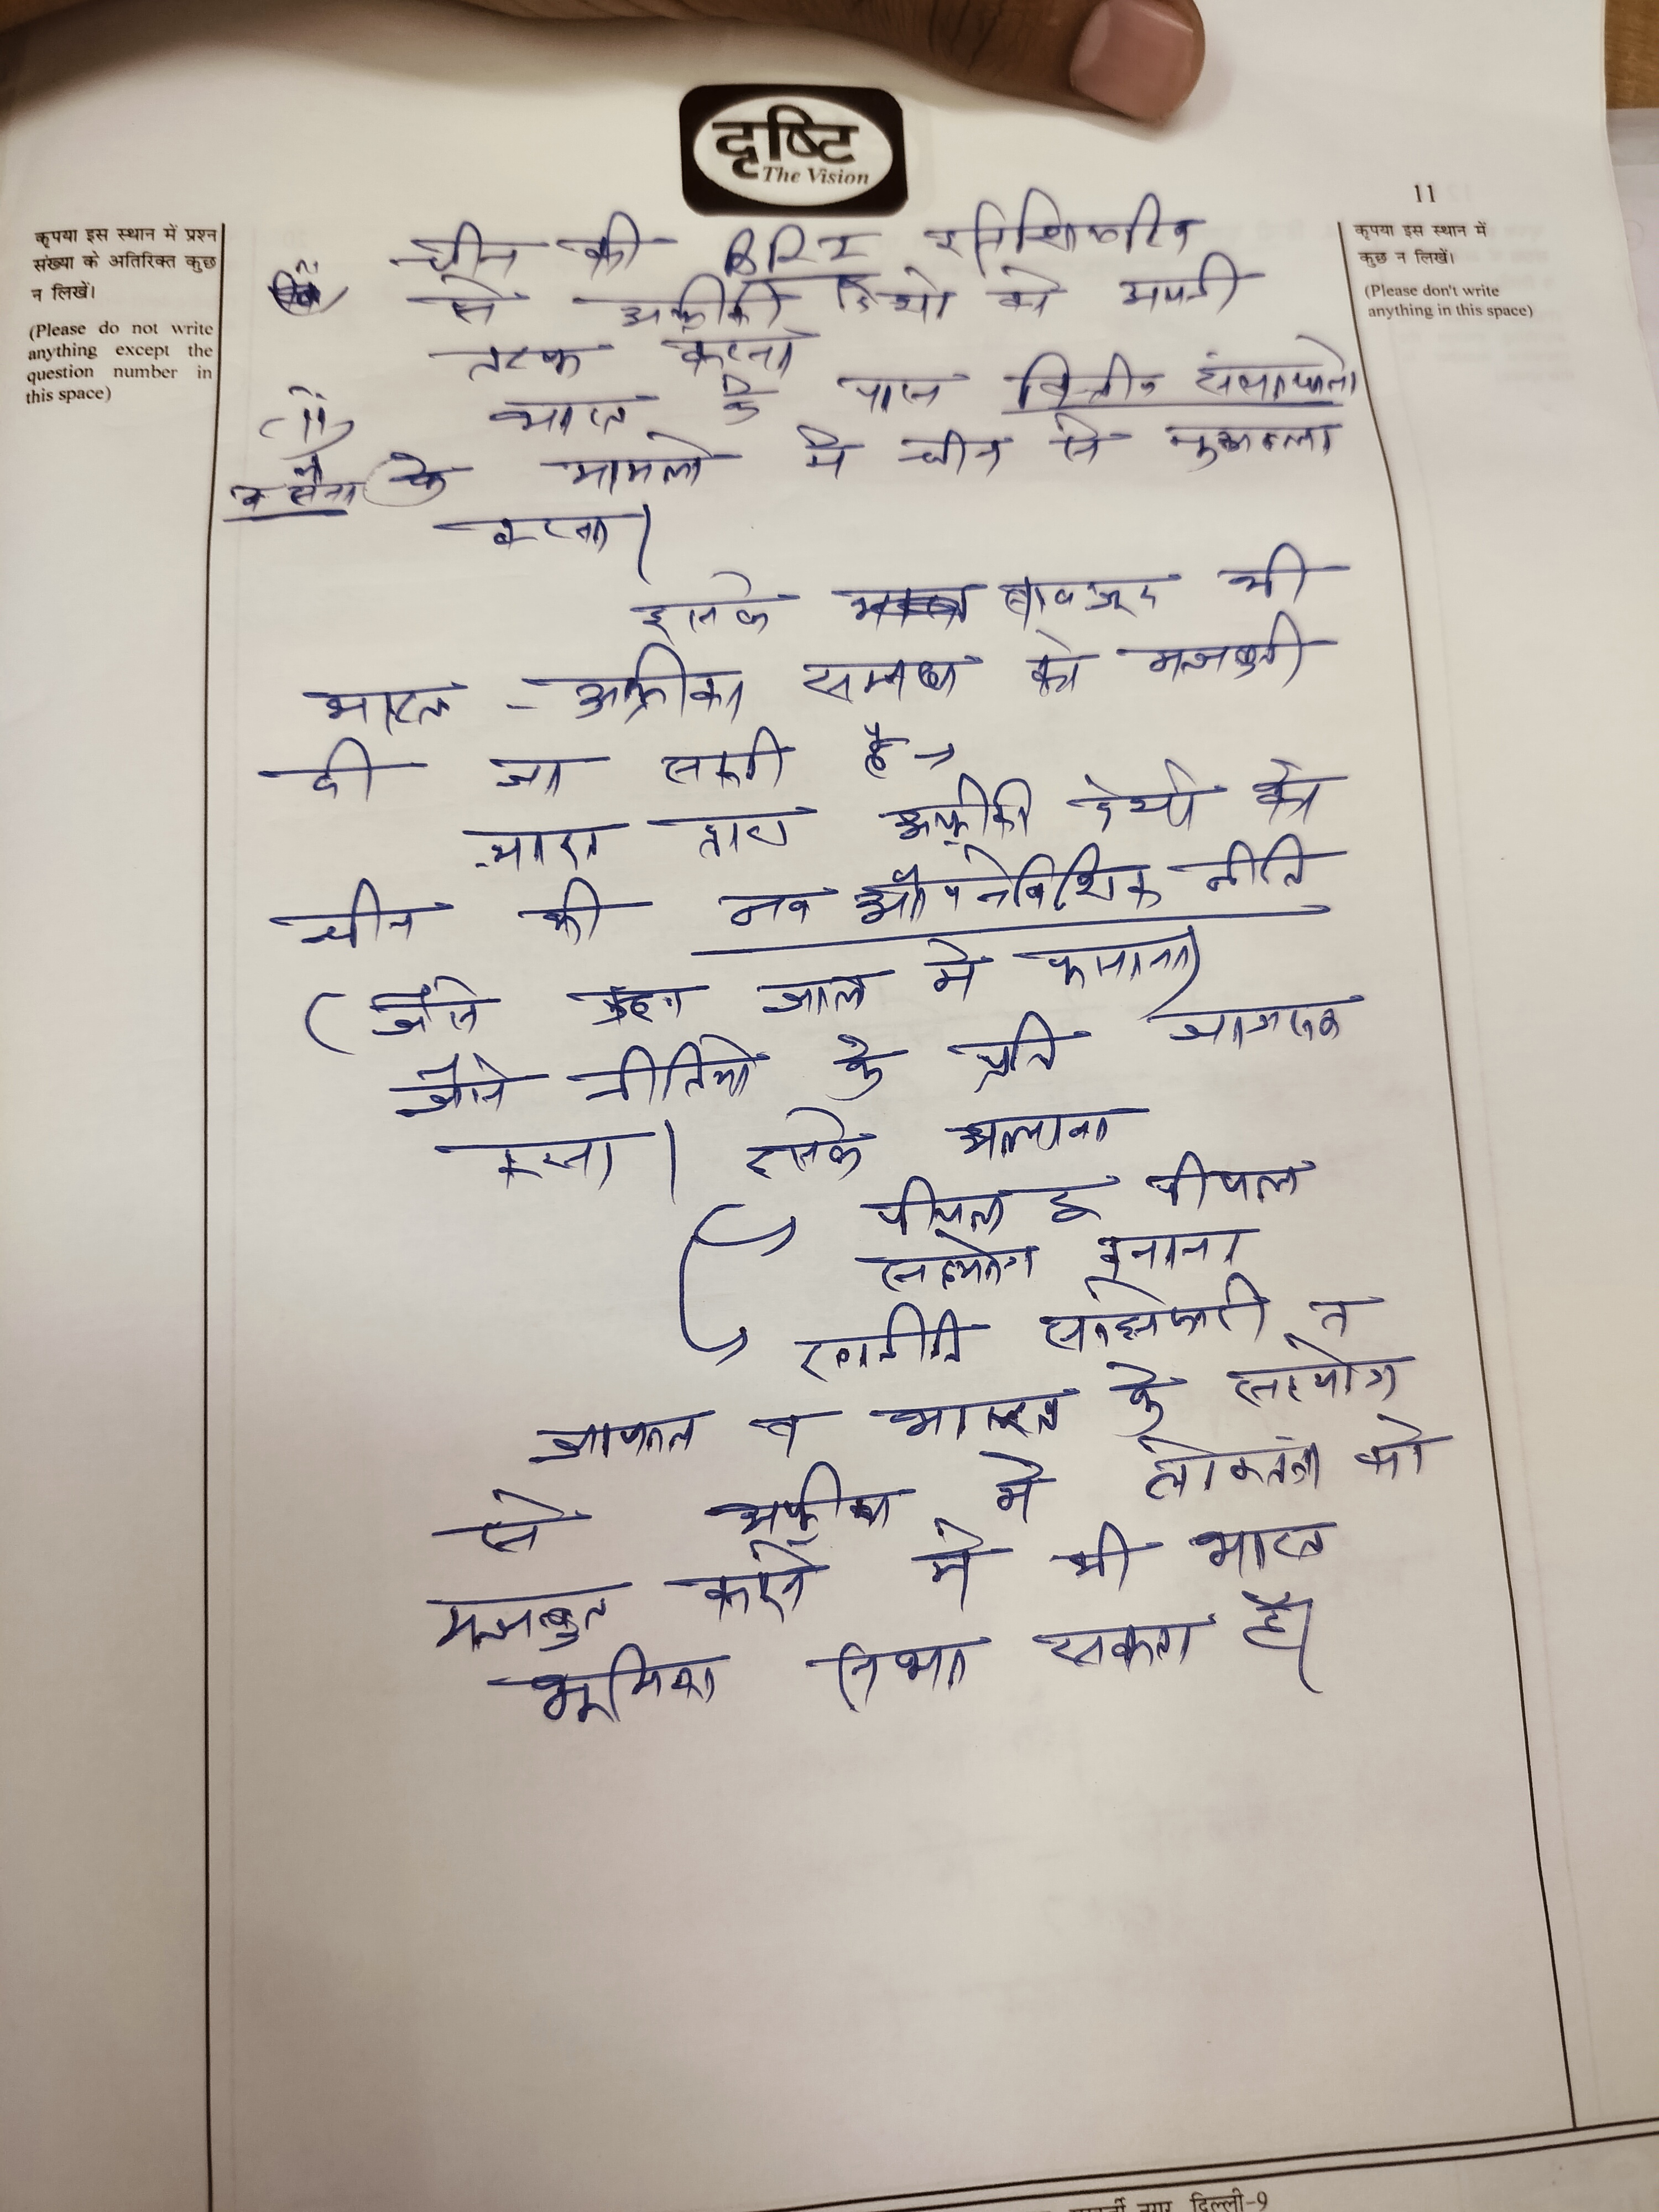 दृष्टि
The Vision
11
कृपया इस स्थान में प्रश्न
संख्या के अतिरिक्त कुछ
न लिखें।
(Please do not write
anything except the
question number in
this space)
कृपया इस स्थान में
कुछ न लिखें।
(Please don't write
anything in this space)
चीन की BRI इनिशिएटिव
से अफ्रीकी देशों को अपनी
तरफ करना
(ii) भारत के पास वित्तीय संसाधनों
व सेना के मामलो में चीन से मुकाबला
करना।
इसके बावजूद भी
भारत - अफ्रीका सम्बंध को मजबुती
दी जा सकती है →
भारत द्वारा अफ्रीकी देशों को
चीन की नव औपनेविशिक नीति
(जैसे ऋण जाल में फसाना)
जैसे नीतियों के प्रति जागरूक
करना। इसके अलावा
पीपल टू पीपल
सहयोग बनाना
रणनीति साझेदारी व
जापान व भारत के सहयोग
से अफ्रीका में लोकतंत्र को
मजबुत करने में भी भारत
भूमिका निभा सकता है।
नगर, दिल्ली-9